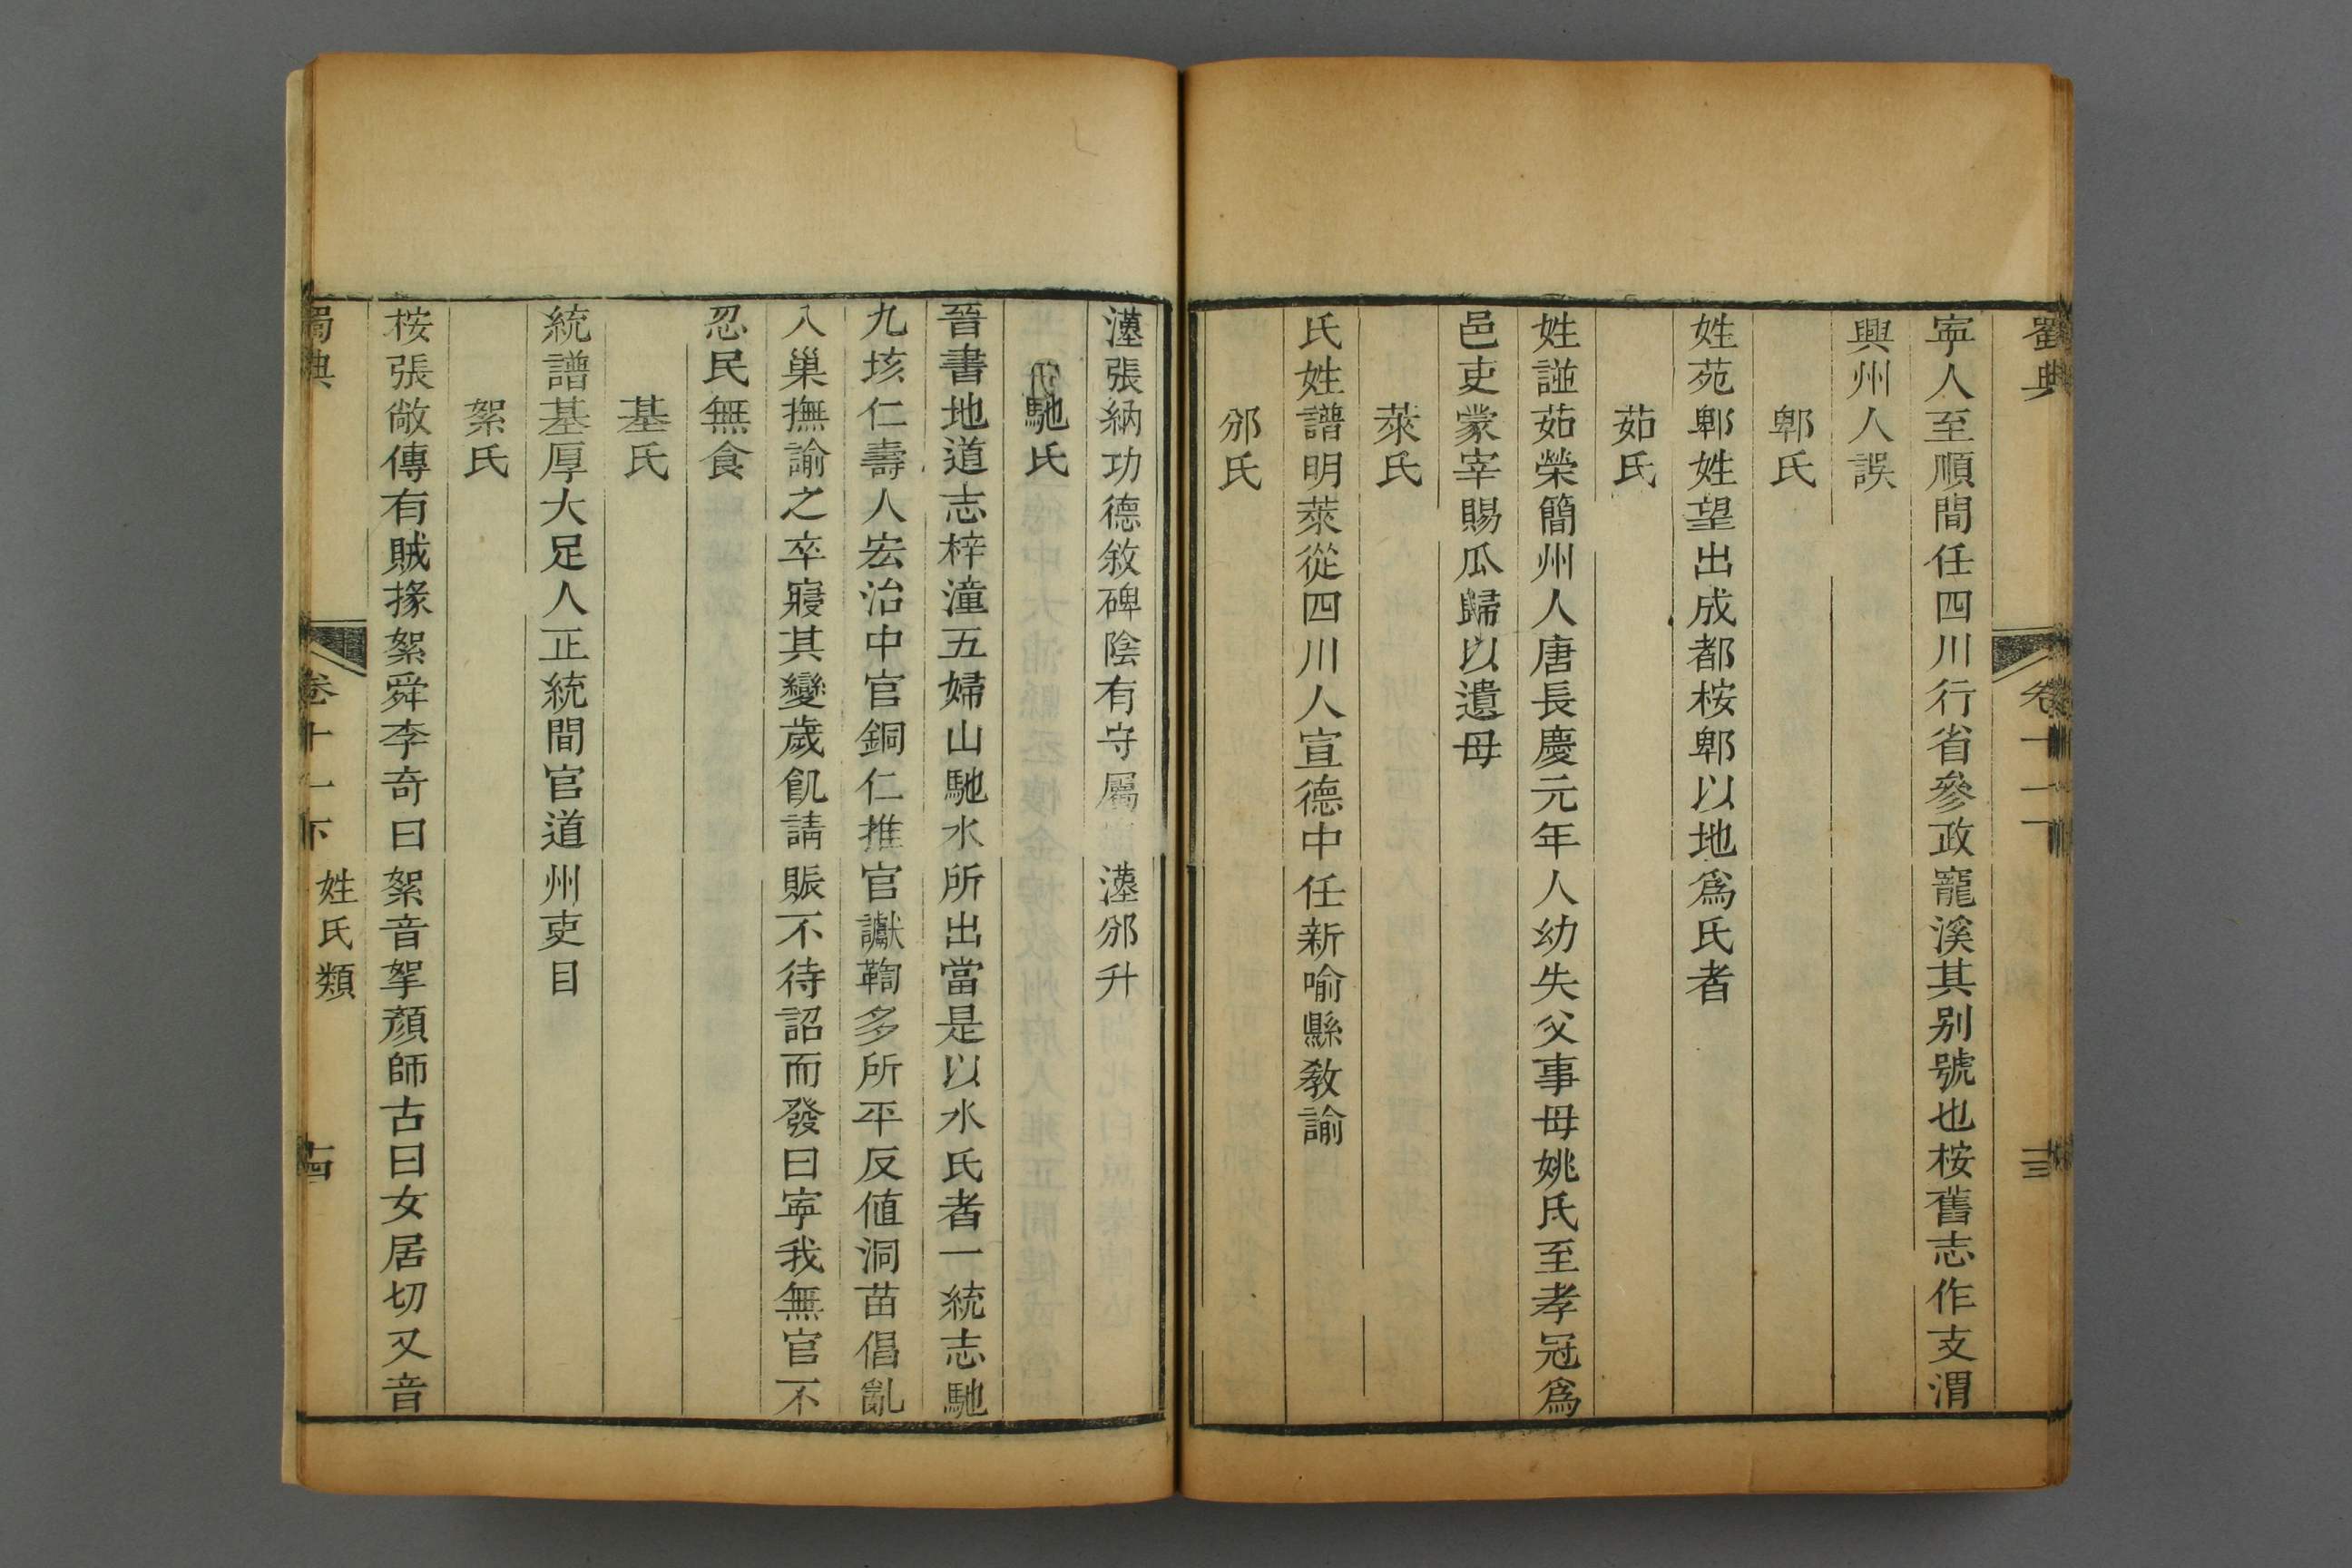 蜀典
卷十一
寕人至順間任四川行省參政寵溪其别號也桉舊志作支渭
興州人誤
郫氏
姓苑郫姓望出成都桉郫以地爲氏者
茹氏
姓譜茹榮簡州人唐長慶元年人幼失父事母姚氏至孝冠爲
邑吏蒙宰賜瓜歸以遺母
萊氏
氏姓譜明萊從四川人宣德中任新喻縣敎諭
邠氏
漢張納功德敘碑陰有守屬漢邠升
馳氏
晉書地道志梓潼五婦山馳水所出當是以水氏者一統志馳
九垓仁壽人宏治中官銅仁推官讞鞫多所平反値洞苗倡亂
入巢撫諭之卒寢其變歲飢請賑不待詔而發曰寕我無官不
忍民無食
基氏
統譜基厚大足人正統間官道州吏目
絮氏
桉張敞傳有賊掾絮舜李奇曰絮音挐顔師古曰女居切又音
蜀典
卷十一下
姓氏類
十四